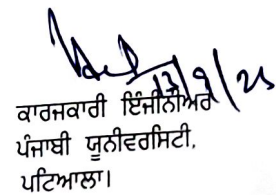 13/9/25
ਕਾਰਜਕਾਰੀ ਇੰਜੀਨੀਅਰ
ਪੰਜਾਬੀ ਯੂਨੀਵਰਸਿਟੀ,
ਪਟਿਆਲਾ।